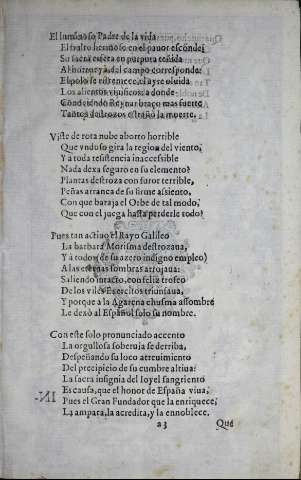 El luminoso Padre de la vida
El rostro hermoso en el pauor esconde,
Su sacra esfera en purpura teñida
Al horror ya del campo corresponde:
El polo se estremece, el ayre oluida
Los alientos viuificos; a donde
Conociendo Reynar braço mas fuerte
Tantos destrozos estraño la muerte.
Viste de rota nube aborto horrible
Que vndoso gira la region del viento,
Y a toda resistencia inaccessible
Nada dexa seguro en su elemento?
Plantas destroza con furor terrible,
Peñas arranca de su firme assiento,
Con que baraja el Orbe de tal modo,
Que con el juega hasta perderle todo?
Pues tan actiuo el Rayo Galileo
La barbara Morisma destrozaua,
Y à todos (de su azero indigno empleo)
A las eternas sombras arrojaua:
Saliendo intacto, con feliz trofeo
De los viles Exercitos triunfaua,
Y porque a la Agarena chusma assombre
Le dexò al Español solo su nombre.
Con este solo pronunciado accento
La orgullosa soberuja se derriba,
Despeñando su loco atreuimiento
Del precipicio de su cumbre altiua:
La sacra insignia del Ioyel sangriento
Es causa, que el honor de España viua,
Pues el Gran Fundador que la enriquece,
La ampara, la acredita, y la ennoblece.
a3 Que